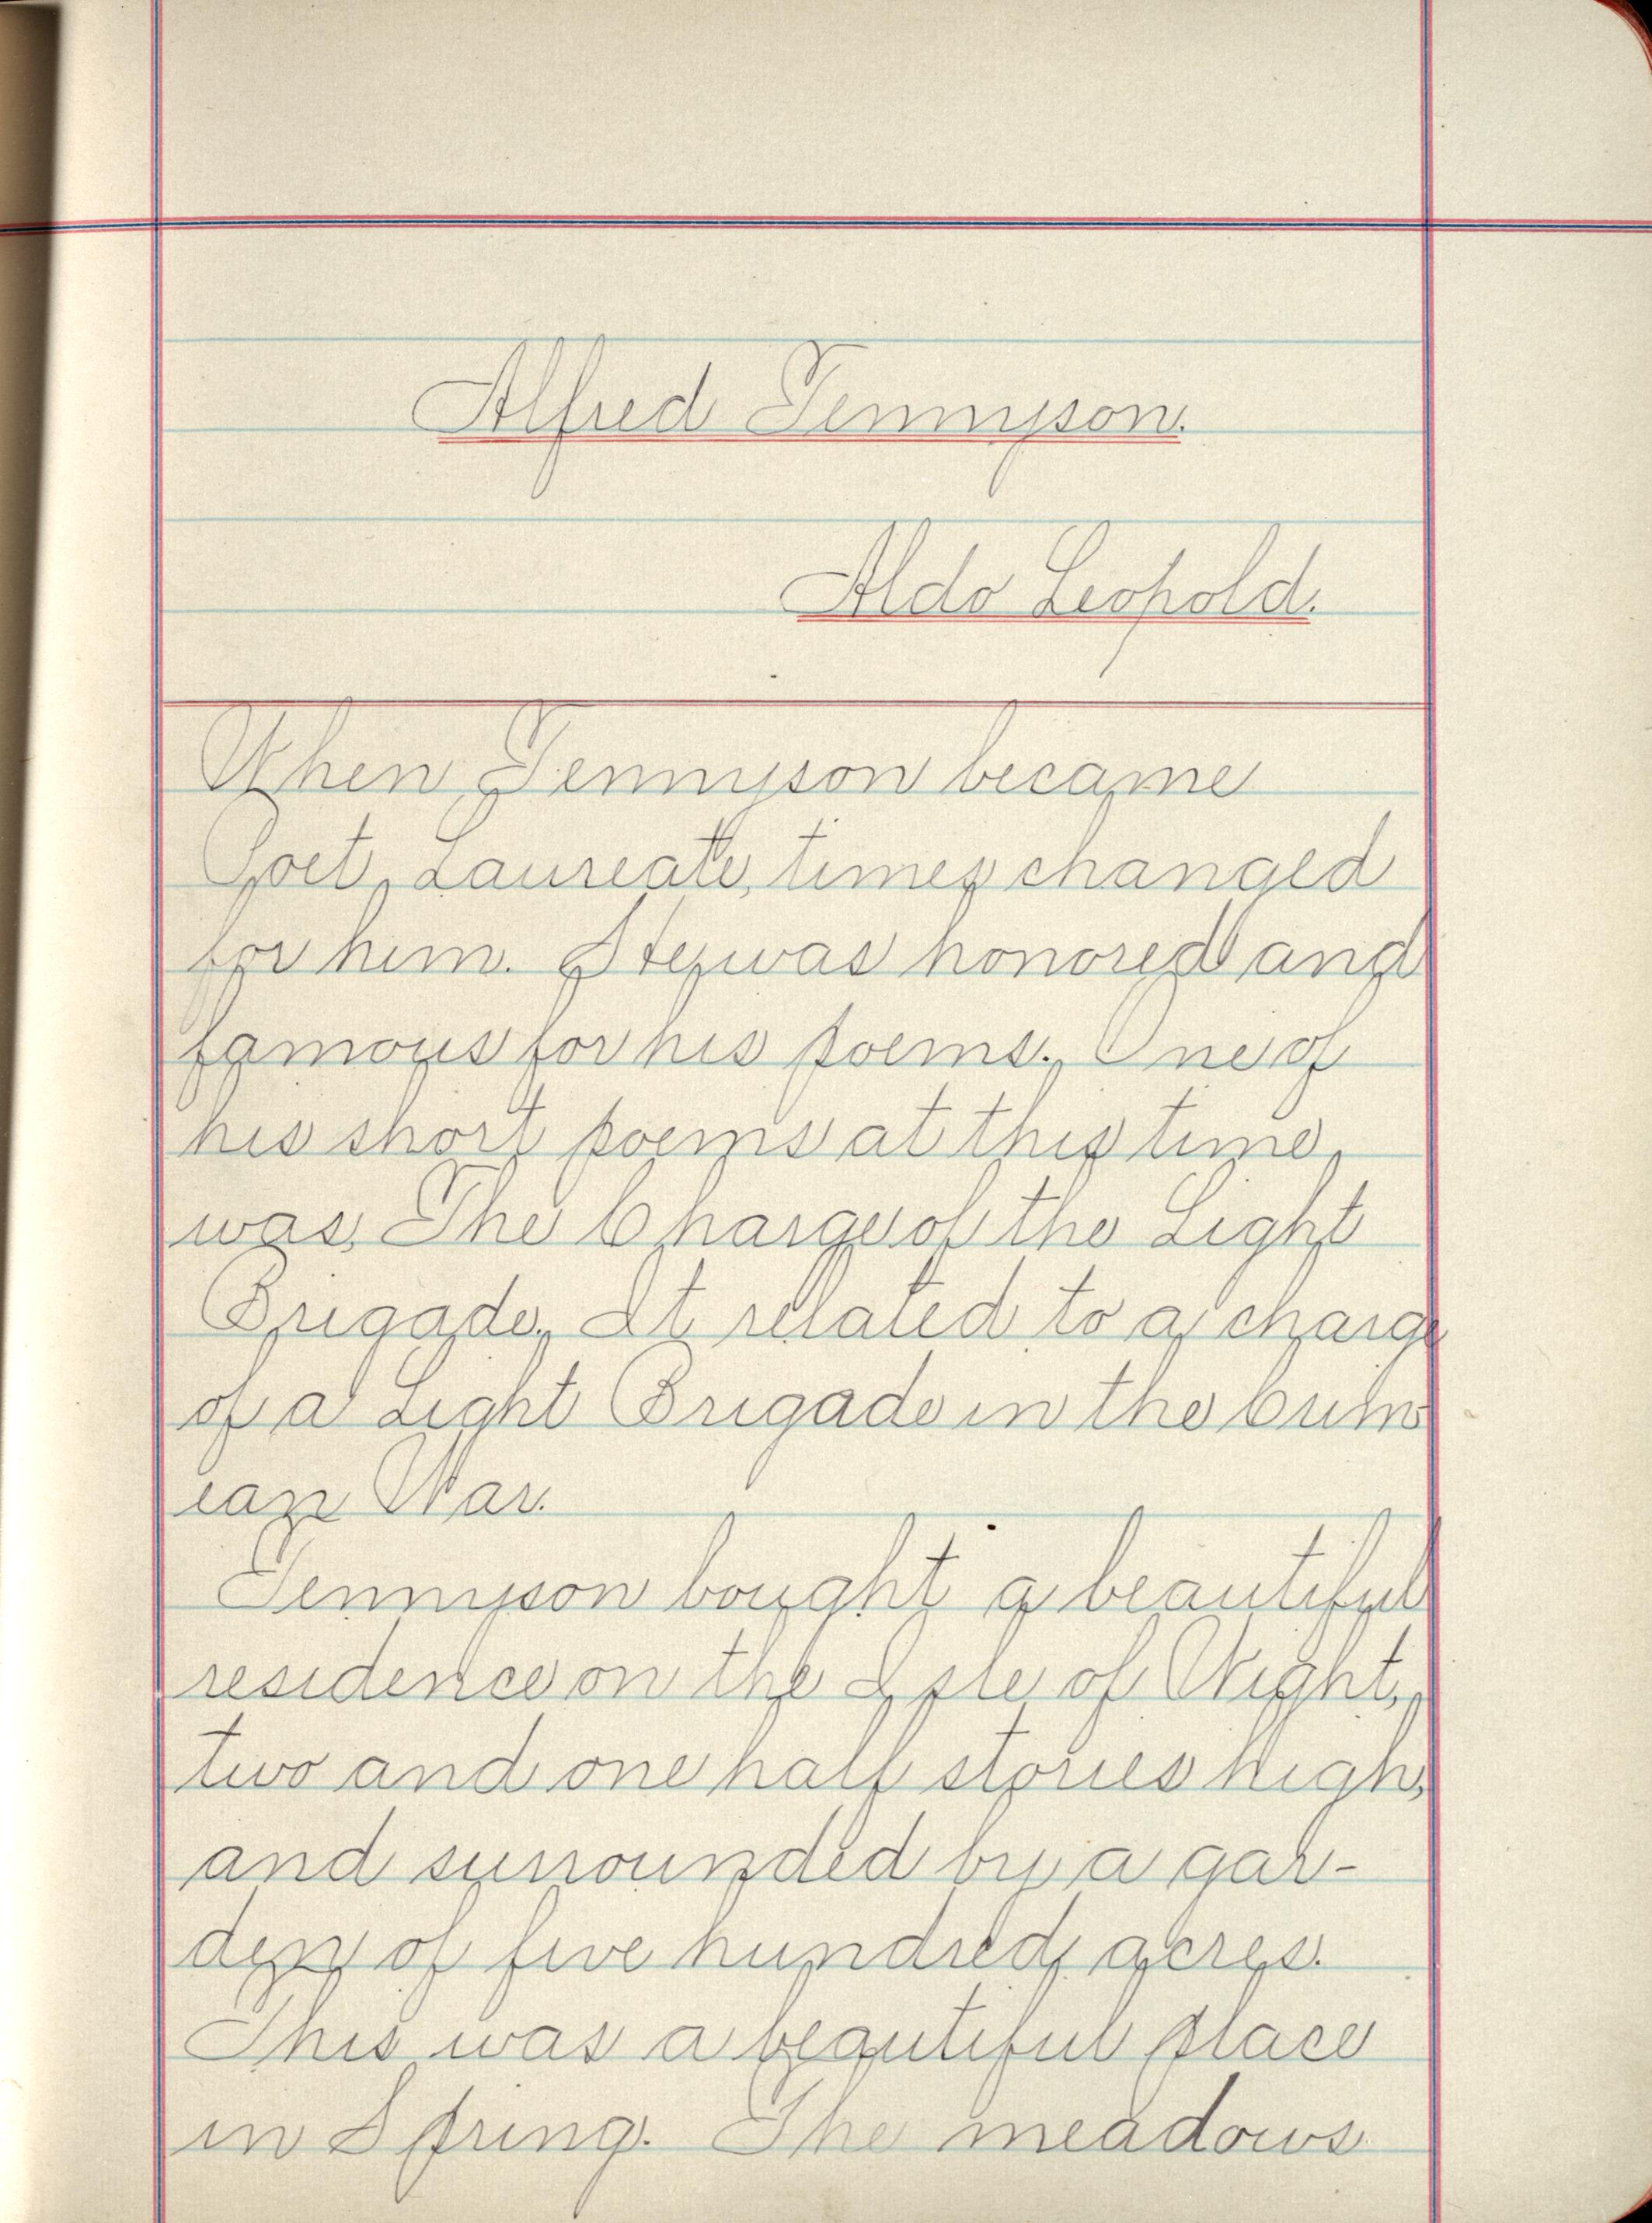 Alfred Tennyson.
Aldo Leopold.
When Tennyson became
Poet Laureate, times changed
for him. He was honored and
famous for his poems. One of
his short poems at this time
was, The Charge of the Light
Brigade. It related to a charge
of a Light Brigade in the Crim
ean War.
Tennyson bought a beautiful
residence on the Isle of Wight,
two and one half stories high,
and surrounded by a gar-
den of five hundred acres.
This was a beautiful place
in Spring. The meadows